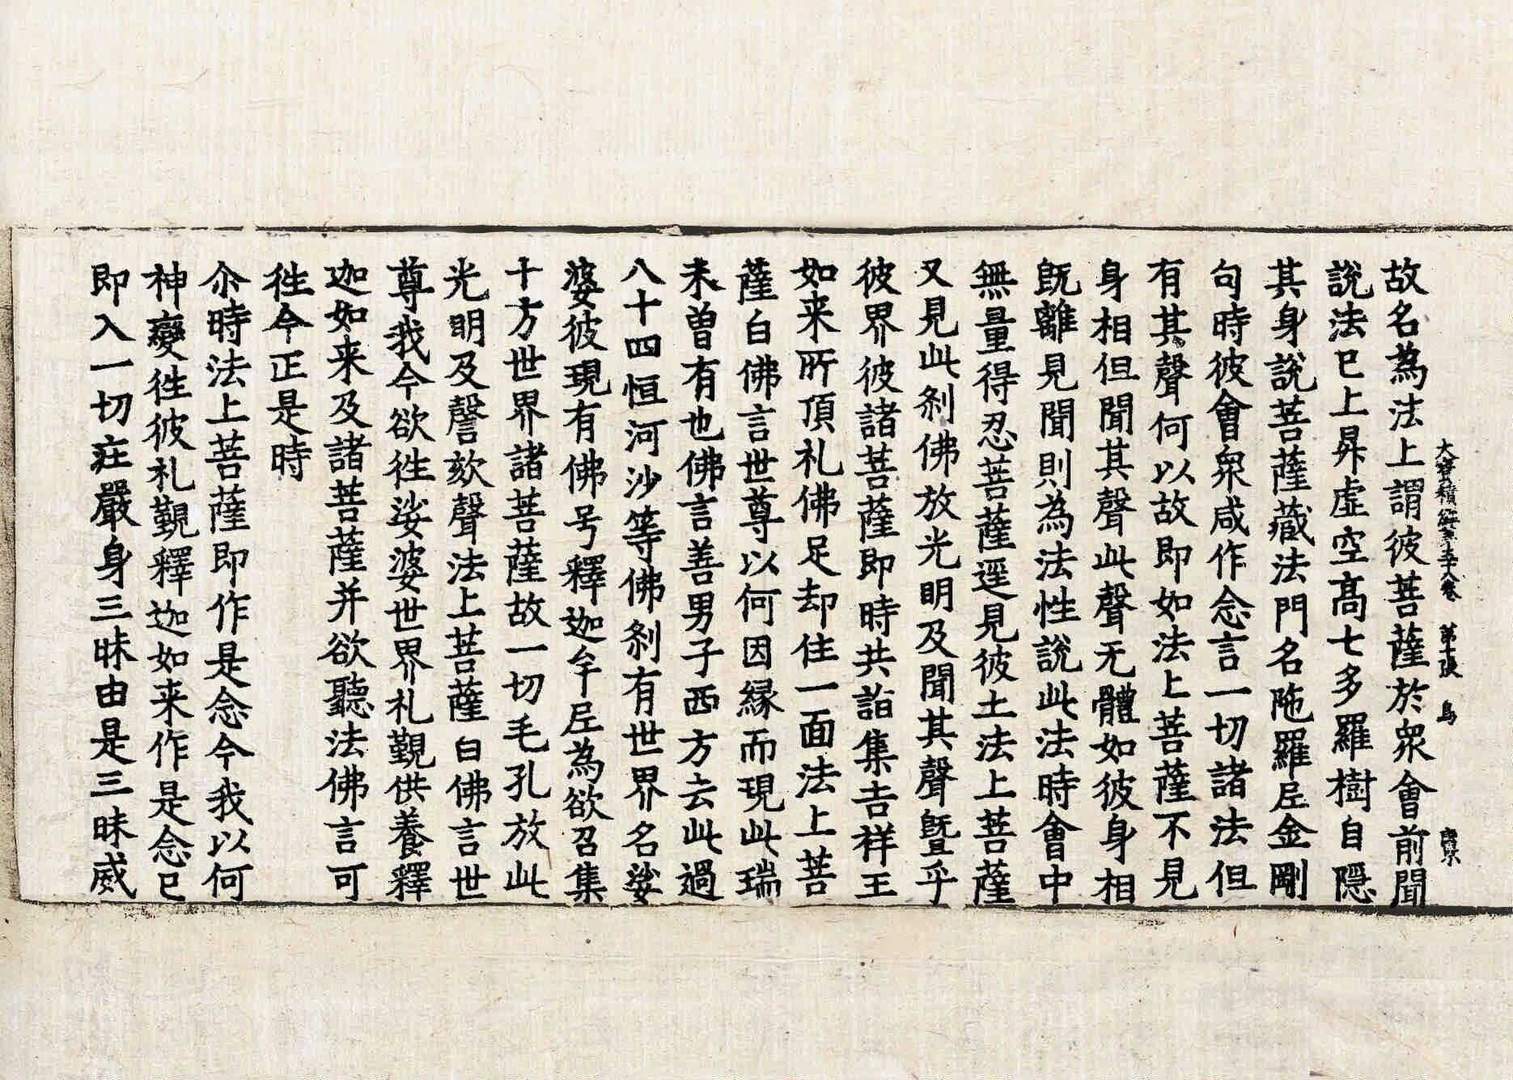 大寶積經第五十八卷　第十張　鳥
故名為法上謂彼菩薩於衆會前聞
說法已上昇虛空高七多羅樹自隱
其身說菩薩藏法門名陁羅层金剛
句時彼會衆咸作念言一切諸法但
有其聲何以故即如法上菩薩不見
身相但聞其聲此聲无體如彼身相
既離見聞則為法性說此法時會中
無量得忍菩薩遥見彼土法上菩薩
又見此剎佛放光明及聞其聲曁乎
彼界彼諸菩薩即時共詣集吉祥王
如来所頂礼佛足却住一面法上菩
薩白佛言世尊以何因縁而現此瑞
未曽有也佛言善男子西方去此過
八十四恒河沙等佛剎有世界名娑
婆彼現有佛号釋迦牟层為欲召集
十方世界諸菩薩故一切毛孔放此
光明及謦欬聲法上菩薩白佛言世
尊我今欲徃娑婆世界礼覲供養釋
迦如来及諸菩薩并欲聽法佛言可
徃今正是時
尒時法上菩薩即作是念今我以何
神變徃彼礼覲釋迦如来作是念已
即入一切莊嚴身三昧由是三昧威